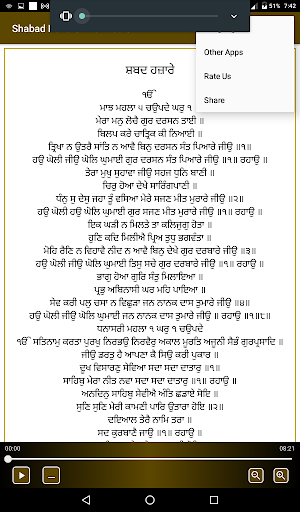 7:42
Shabad
Other Apps
Rate Us
Share
ਸ਼ਬਦ ਹਜ਼ਾਰੇ
ੴ
ਮਾਝ ਮਹਲਾ ੫ ਚਉਪਦੇ ਘਰੁ ੧
ਮੇਰਾ ਮਨੁ ਲੋਚੈ ਗੁਰ ਦਰਸਨ ਤਾਈ ॥
ਬਿਲਪ ਕਰੇ ਚਾਤ੍ਰਿਕ ਕੀ ਨਿਆਈ ॥
ਤ੍ਰਿਖਾ ਨ ਉਤਰੈ ਸਾਂਤਿ ਨ ਆਵੈ ਬਿਨੁ ਦਰਸਨ ਸੰਤ ਪਿਆਰੇ ਜੀਉ ॥੧॥
ਹਉ ਘੋਲੀ ਜੀਉ ਘੋਲਿ ਘੁਮਾਈ ਗੁਰ ਦਰਸਨ ਸੰਤ ਪਿਆਰੇ ਜੀਉ ॥੧॥ ਰਹਾਉ ॥
ਤੇਰਾ ਮੁਖੁ ਸੁਹਾਵਾ ਜੀਉ ਸਹਜ ਧੁਨਿ ਬਾਣੀ ॥
ਚਿਰੁ ਹੋਆ ਦੇਖੇ ਸਾਰਿੰਗਪਾਣੀ ॥
ਧੰਨੁ ਸੁ ਦੇਸੁ ਜਹਾ ਤੂੰ ਵਸਿਆ ਮੇਰੇ ਸਜਣ ਮੀਤ ਮੁਰਾਰੇ ਜੀਉ ॥੨॥
ਹਉ ਘੋਲੀ ਹਉ ਘੋਲਿ ਘੁਮਾਈ ਗੁਰ ਸਜਣ ਮੀਤ ਮੁਰਾਰੇ ਜੀਉ ॥੧॥ ਰਹਾਉ ॥
ਇਕ ਘੜੀ ਨ ਮਿਲਤੇ ਤਾ ਕਲਿਜੁਗੁ ਹੋਤਾ ॥
ਹੁਣਿ ਕਦਿ ਮਿਲੀਐ ਪ੍ਰਿਅ ਤੁਧੁ ਭਗਵੰਤਾ ॥
ਮੋਹਿ ਰੈਣਿ ਨ ਵਿਹਾਵੈ ਨੀਦ ਨ ਆਵੈ ਬਿਨੁ ਦੇਖੇ ਗੁਰ ਦਰਬਾਰੇ ਜੀਉ ॥੩॥
ਹਉ ਘੋਲੀ ਜੀਉ ਘੋਲਿ ਘੁਮਾਈ ਤਿਸੁ ਸਚੇ ਗੁਰ ਦਰਬਾਰੇ ਜੀਉ ॥੧॥ ਰਹਾਉ ॥
ਭਾਗੁ ਹੋਆ ਗੁਰਿ ਸੰਤੁ ਮਿਲਾਇਆ ॥
ਪ੍ਰਭੁ ਅਬਿਨਾਸੀ ਘਰ ਮਹਿ ਪਾਇਆ ॥
ਸੇਵ ਕਰੀ ਪਲੁ ਚਸਾ ਨ ਵਿਛੁੜਾ ਜਨ ਨਾਨਕ ਦਾਸ ਤੁਮਾਰੇ ਜੀਉ ॥੪॥
ਹਉ ਘੋਲੀ ਜੀਉ ਘੋਲਿ ਘੁਮਾਈ ਜਨ ਨਾਨਕ ਦਾਸ ਤੁਮਾਰੇ ਜੀਉ ॥ ਰਹਾਉ ॥੧॥੮॥
ਧਨਾਸਰੀ ਮਹਲਾ ੧ ਘਰੁ ੧ ਚਉਪਦੇ
ੴ ਸਤਿਨਾਮੁ ਕਰਤਾ ਪੁਰਖੁ ਨਿਰਭਉ ਨਿਰਵੈਰੁ ਅਕਾਲ ਮੂਰਤਿ ਅਜੂਨੀ ਸੈਭੰ ਗੁਰਪ੍ਰਸਾਦਿ ॥
ਜੀਉ ਡਰਤੁ ਹੈ ਆਪਣਾ ਕੈ ਸਿਉ ਕਰੀ ਪੁਕਾਰ ॥
ਦੂਖ ਵਿਸਾਰਣੁ ਸੇਵਿਆ ਸਦਾ ਸਦਾ ਦਾਤਾਰੁ ॥੧॥
ਸਾਹਿਬੁ ਮੇਰਾ ਨੀਤ ਨਵਾ ਸਦਾ ਸਦਾ ਦਾਤਾਰੁ ॥੧॥ ਰਹਾਉ ॥
ਅਨਦਿਨੁ ਸਾਹਿਬੁ ਸੇਵੀਐ ਅੰਤਿ ਛਡਾਏ ਸੋਇ ॥
ਸੁਣਿ ਸੁਣਿ ਮੇਰੀ ਕਾਮਣੀ ਪਾਰਿ ਉਤਾਰਾ ਹੋਇ ॥੨॥
ਦਇਆਲ ਤੇਰੈ ਨਾਮਿ ਤਰਾ ॥
ਸਦ ਕੁਰਬਾਣੈ ਜਾਉ ॥੧॥ ਰਹਾਉ ॥
00:00
08:21